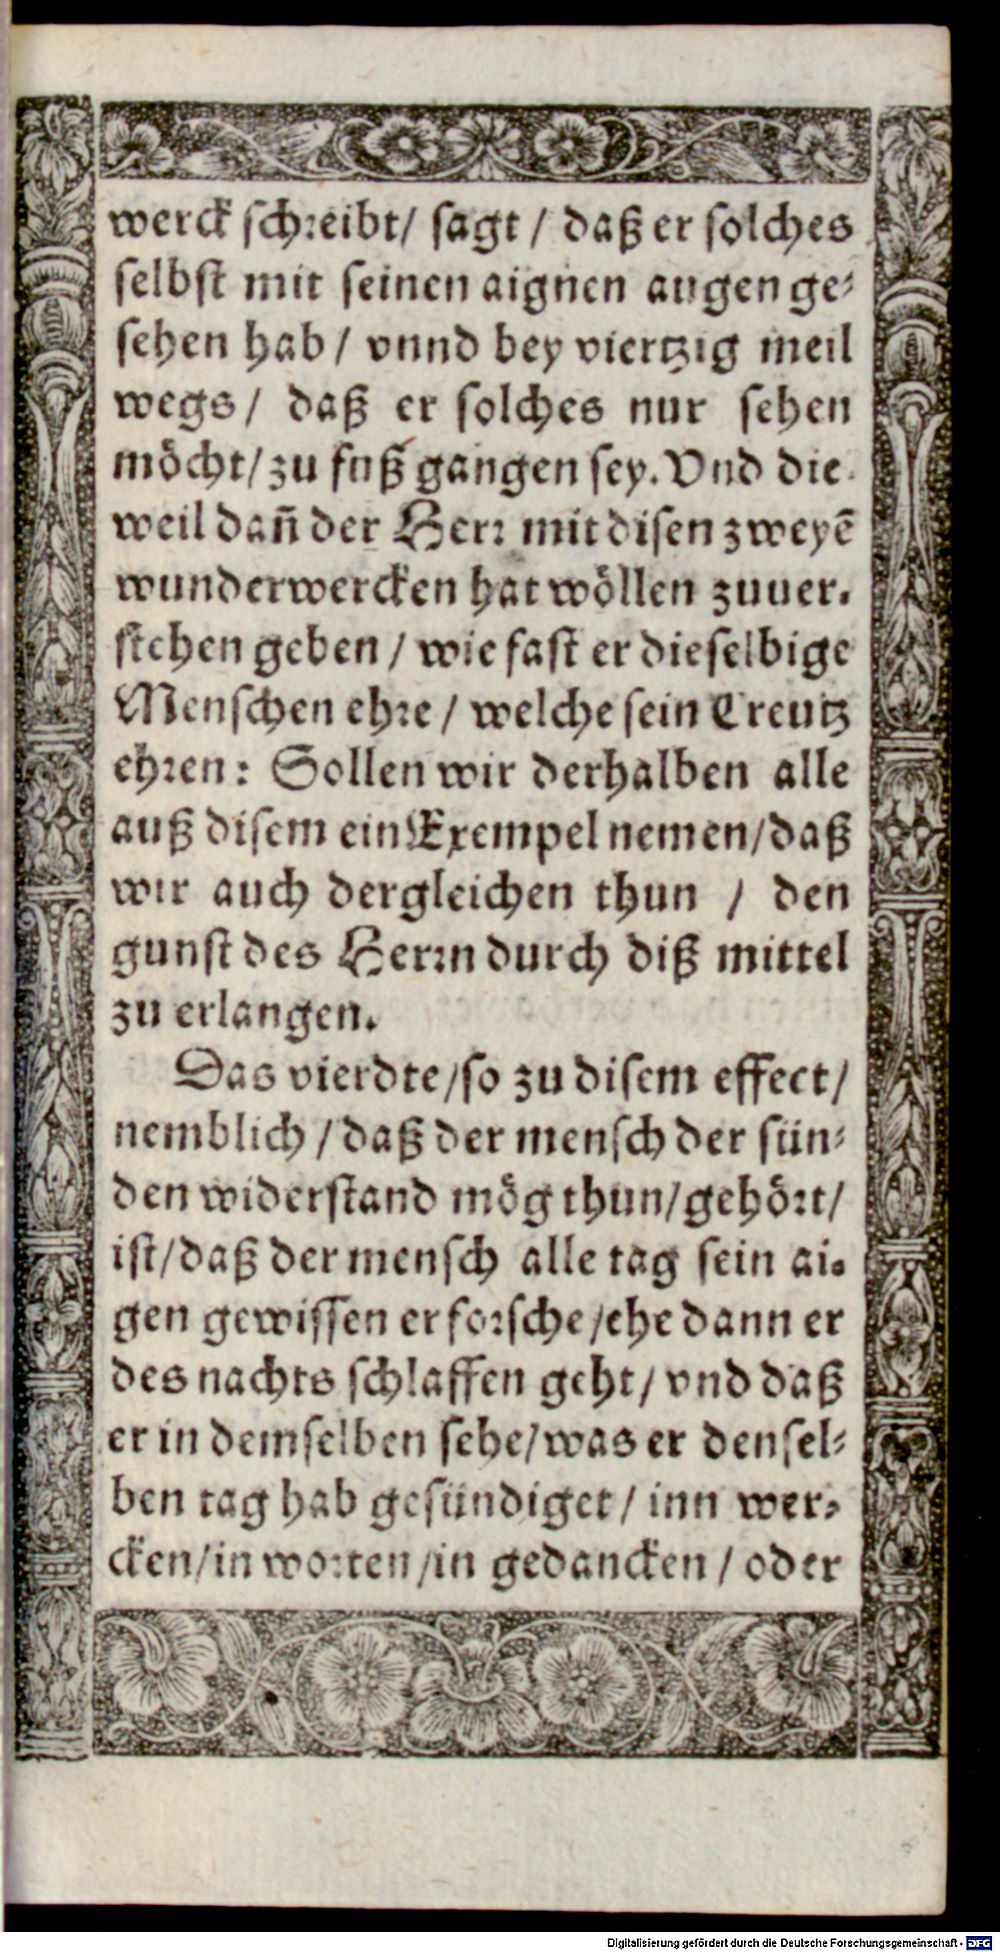 werck schreibt/ sagt / daß er solches
selbst mit seinen aignen augen ge-
sehen hab / vnnd bey viertzig meil
wegs / daß er solches nur sehen
möcht/ zu fuß gangen sey. Vnd die
weil dañ der Herr mit disen zweyē
wunderwercken hat wöllen zuuer-
stehen geben / wie fast er dieselbige
Menschen ehre / welche sein Creutz
ehren: Sollen wir derhalben alle
auß disem ein Exempel nemen/ daß
wir auch dergleichen thun / den
gunst des Herrn durch diß mittel
zu erlangen.
Das vierdte/ so zu disem effect/
nemblich / daß der mensch der sün-
den widerstand mög thun/ gehört/
ist/ daß der mensch alle tag sein ai-
gen gewissen erforsche/ ehe dann er
des nachts schlaffen geht/ vnd daß
er in demselben sehe/ was er densel-
ben tag hab gesündiget / inn wer-
cken/ in worten /in gedancken / oder
Digitalisierung gefördert durch die Deutsche Forschungsgemeinschaft - DFG